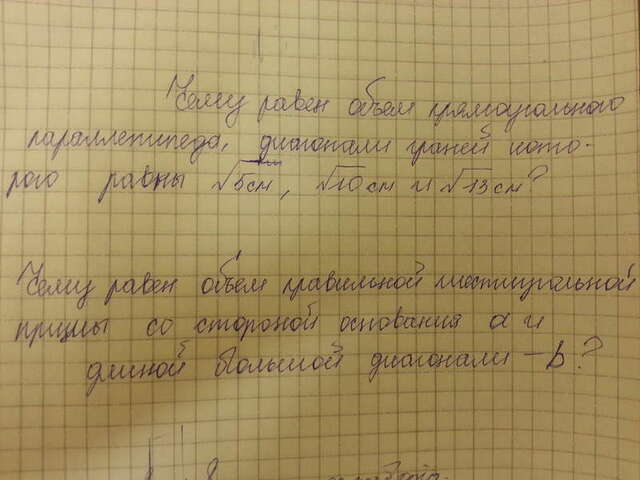 Чему равен объем прямоугольного
параллепипеда, диагонали граней кото-
рого равны √5см, √10 см и √13 см?
Чему равен объём правильной шестиугольной
призмы со стороной основания a и
длиной большой диагонали - b?